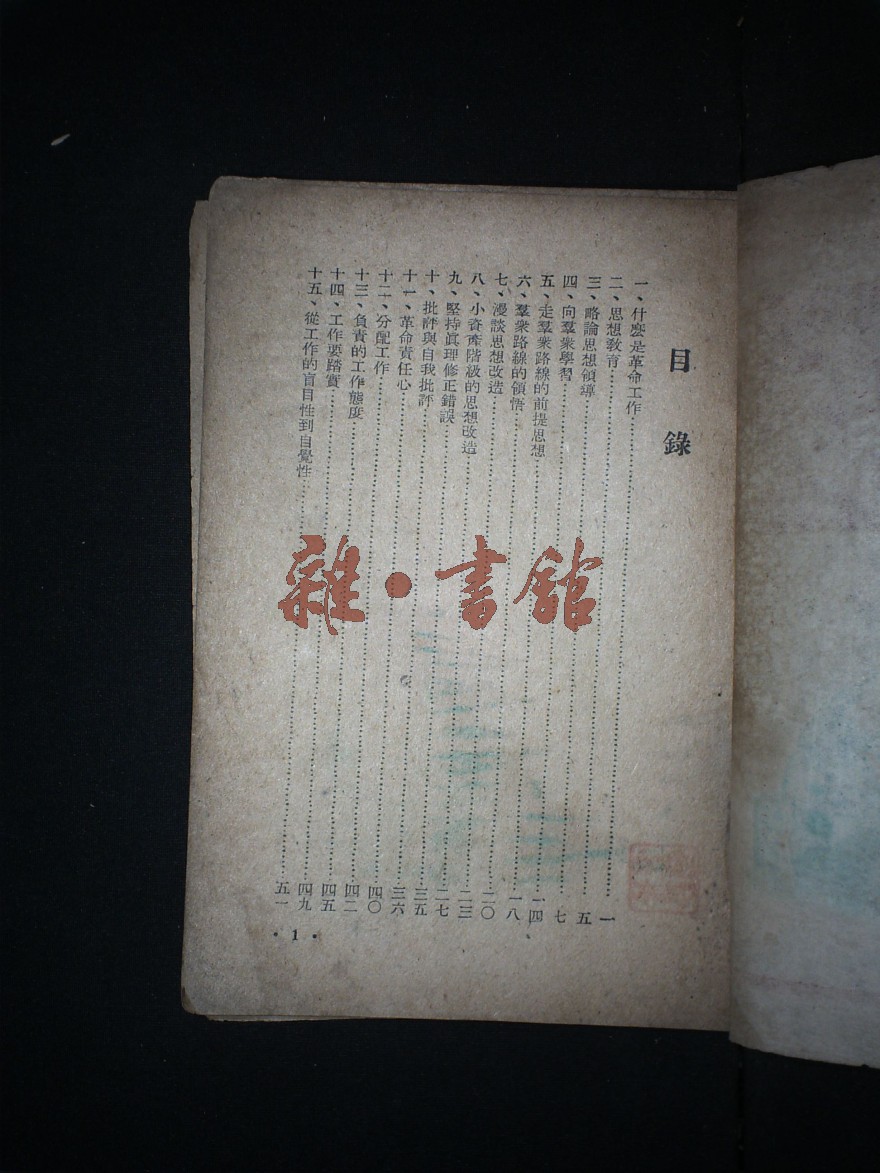 目錄
一、什麼是革命工作……一
二、思想教育……五
三、略論思想領導……七
四、向羣衆學習……一四
五、走羣衆路線的前提思想……一八
六、羣衆路線的領悟……二〇
七、漫談思想改造……二三
八、小資產階級的思想改造……二七
九、堅持眞理修正錯誤……三五
十、批評與自我批評……三六
十一、革命責任心……四〇
十二、分配工作……四二
十三、負責的工作態度……四五
十四、工作要踏實……四九
十五、從工作的盲目性到自覺性……五一
·1·
雜·書館